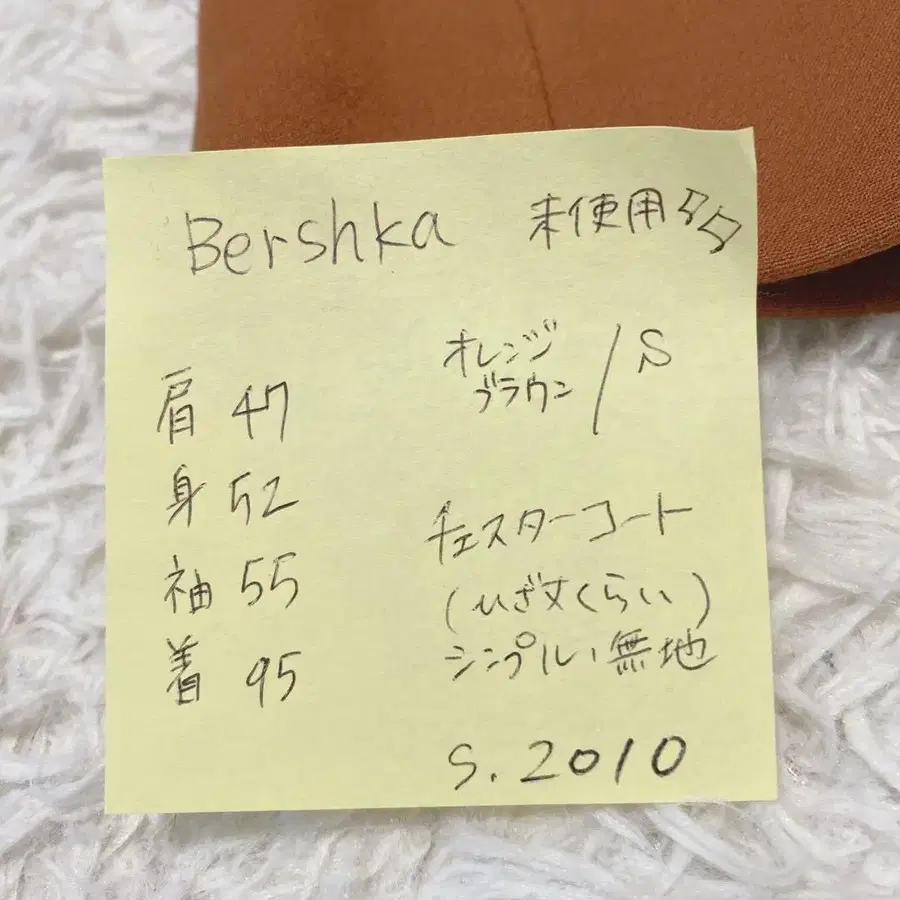 Bershka 未使用タグ
オレンジ
ブラウン / S
肩 47
身 52
袖 55
着 95
チェスターコート
(ひざ丈くらい)
シンプル、無地
S. 2010